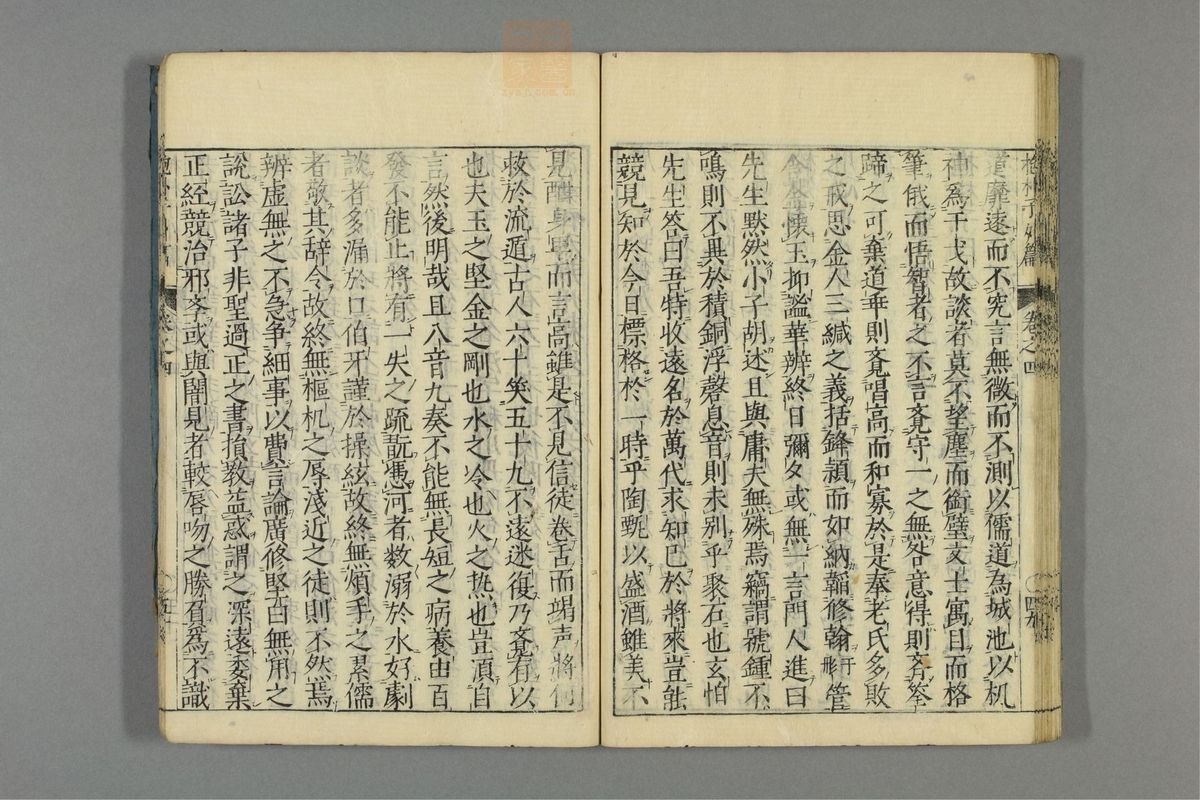 道靡遠而不究言無微而不測以儒道為城池以机
神為干戈故談者莫不望塵而銜璧文士寓目而格
筆俄而悟智者之不言竟守一之無咎意得則竟筌
蹄之可棄道乖則竟唱高而和寡於是奉老氏多敗
之戒思金人三緘之義括鋒穎而如納韜修翰于彤管
含金懷玉抑謐華辨終日彌夕或無一言門人進曰
先生默然小子胡述且與庸夫無殊焉竊謂號鍾不
鳴則不異於積銅浮磬息音則未別乎聚石也玄怕
先生答曰吾特收遠名於萬代求知已於將來豈能
競見知於今日標格於一時乎陶甄以盛酒雖美不
見酣身卑而言高雖是不見信徒卷舌而竭声將何
救於流遁古人六十笑五十九不遠迷復乃竟有以
也夫玉之堅金之剛也水之冷也火之热也豈湏自
言然後明哉且八音九奏不能無長短之病養由百
發不能止將有一失之疏翫憑河者数溺於水好劇
談者多漏於口伯牙謹於操絃故終無煩手之累儒
者敬其辞令故終無樞机之辱淺近之徒則不然焉
辨虛無之不急争細事以費言論廣修堅白無用之
說訟諸子非聖過正之書損教益惑謂之深遠委棄
正经競治邪斈或與闇見者較唇吻之勝負為不識
卷之四
四九